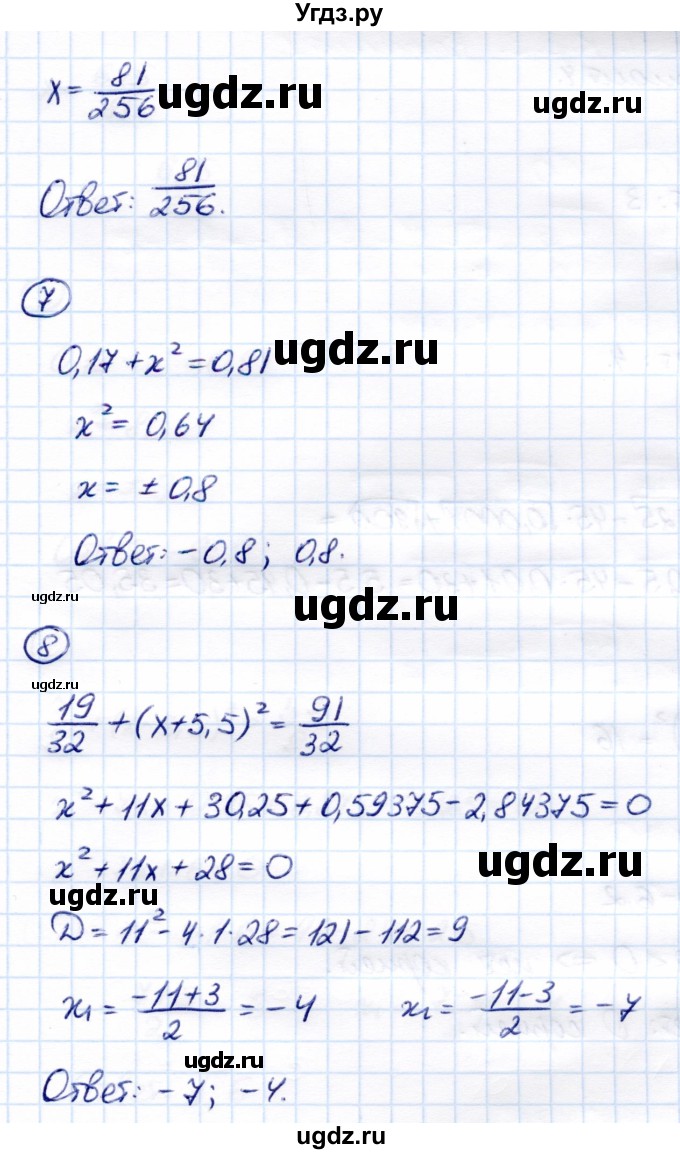 Угдз.ру
x = 81/256 ugdz.ru ugdz.ru
Ответ: 81/256.
7
0,17 + x² = 0,81 ugdz.ru
x² = 0,64
x = ± 0,8
Ответ: -0,8; 0,8.
ugdz.ru ugdz.ru
8
ugdz.ru
19/32 + (x+5,5)² = 91/32
x² + 11x + 30,25 + 0,59375 - 2,84375 = 0
x² + 11x + 28 = 0 ugdz.ru
ugdz.ru
D = 11² - 4·1·28 = 121 - 112 = 9
x₁ = (-11+3)/2 = -4 x₂ = (-11-3)/2 = -7
ugdz.ru
Ответ: -7; -4.
ugdz.ru